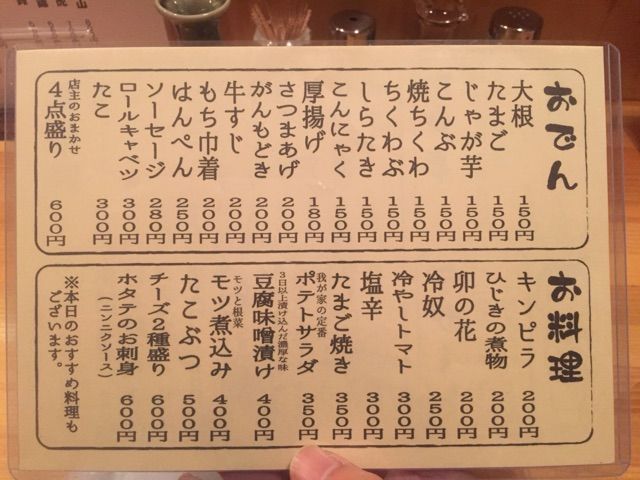 おでん
大根 150円
たまご 150円
じゃが芋 150円
こんぶ 150円
焼ちくわ 150円
ちくわぶ 150円
しらたき 150円
こんにゃく 150円
厚揚げ 180円
さつまあげ 200円
がんもどき 200円
牛すじ 200円
もち巾着 200円
はんぺん 250円
ソーセージ 280円
ロールキャベツ 300円
たこ 300円
店主のおまかせ
4点盛り 600円
お料理
キンピラ 200円
ひじきの煮物 200円
卯の花 200円
冷奴 250円
冷やしトマト 300円
塩辛 300円
たまご焼き 350円
我が家の定番
ポテトサラダ 350円
3日以上漬け込んだ濃厚な味
豆腐味噌漬け 400円
モツと根菜
モツ煮込み 400円
たこぶつ 500円
チーズ2種盛り 600円
ホタテのお刺身 600円
(ニンニクソース)
※本日のおすすめ料理も
ございます。